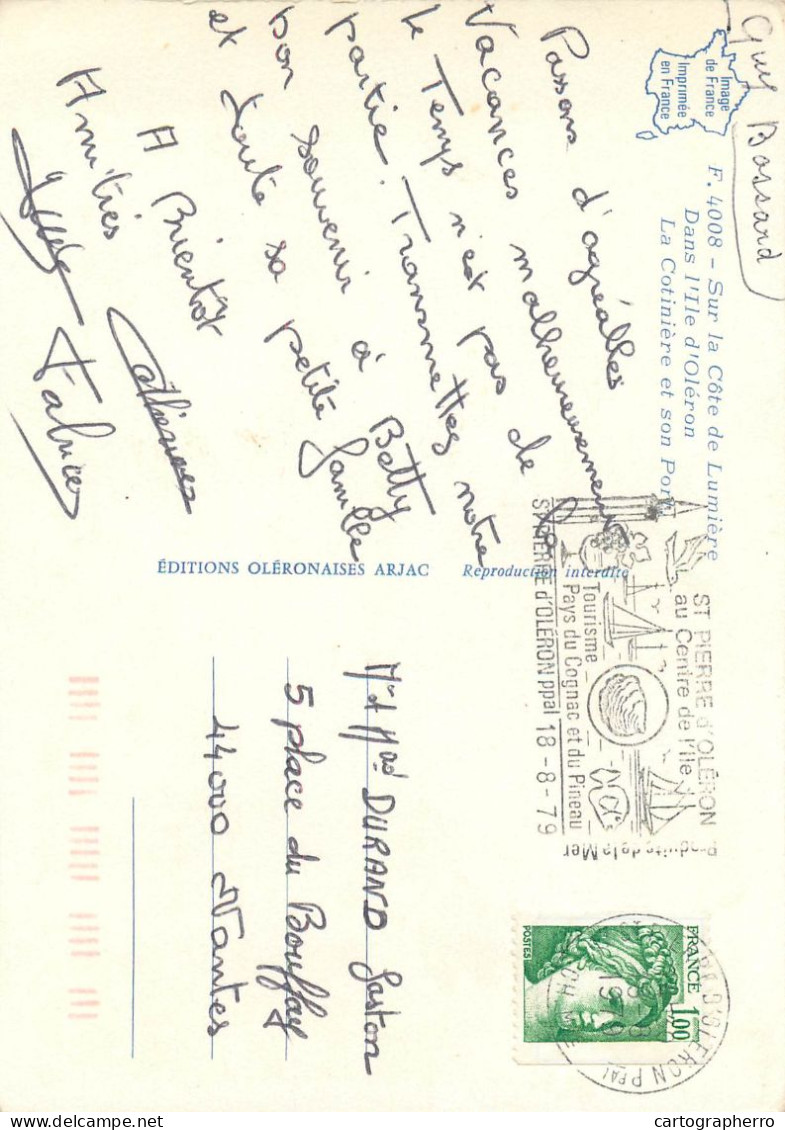 Guy Bossard
Image
de France
Imprimée
en France
F. 4008 - Sur la Côte de Lumière
Dans l'Ile d'Oléron
La Cotinière et son Port
Passons d'agréables
Vacances malheureusement
le Temps n'est pas de la
partie. Transmettez notre
bon souvenir à Betty
et toute sa petite famille
A Bientôt
Amitiés
Fabrice
ÉDITIONS OLÉRONAISES ARJAC Reproduction interdite
ST PIERRE d'OLÉRON
au Centre de l'Ile
Produits de la Mer
Tourisme
Pays du Cognac et du Pineau
ST PIERRE d'OLÉRON ppal 18-8-79
FRANCE
1,00
POSTES
D'OLERON PPAL
Mr & Mme DURAND Gaston
5 place du Bouffay
44000 Nantes
cartographerro